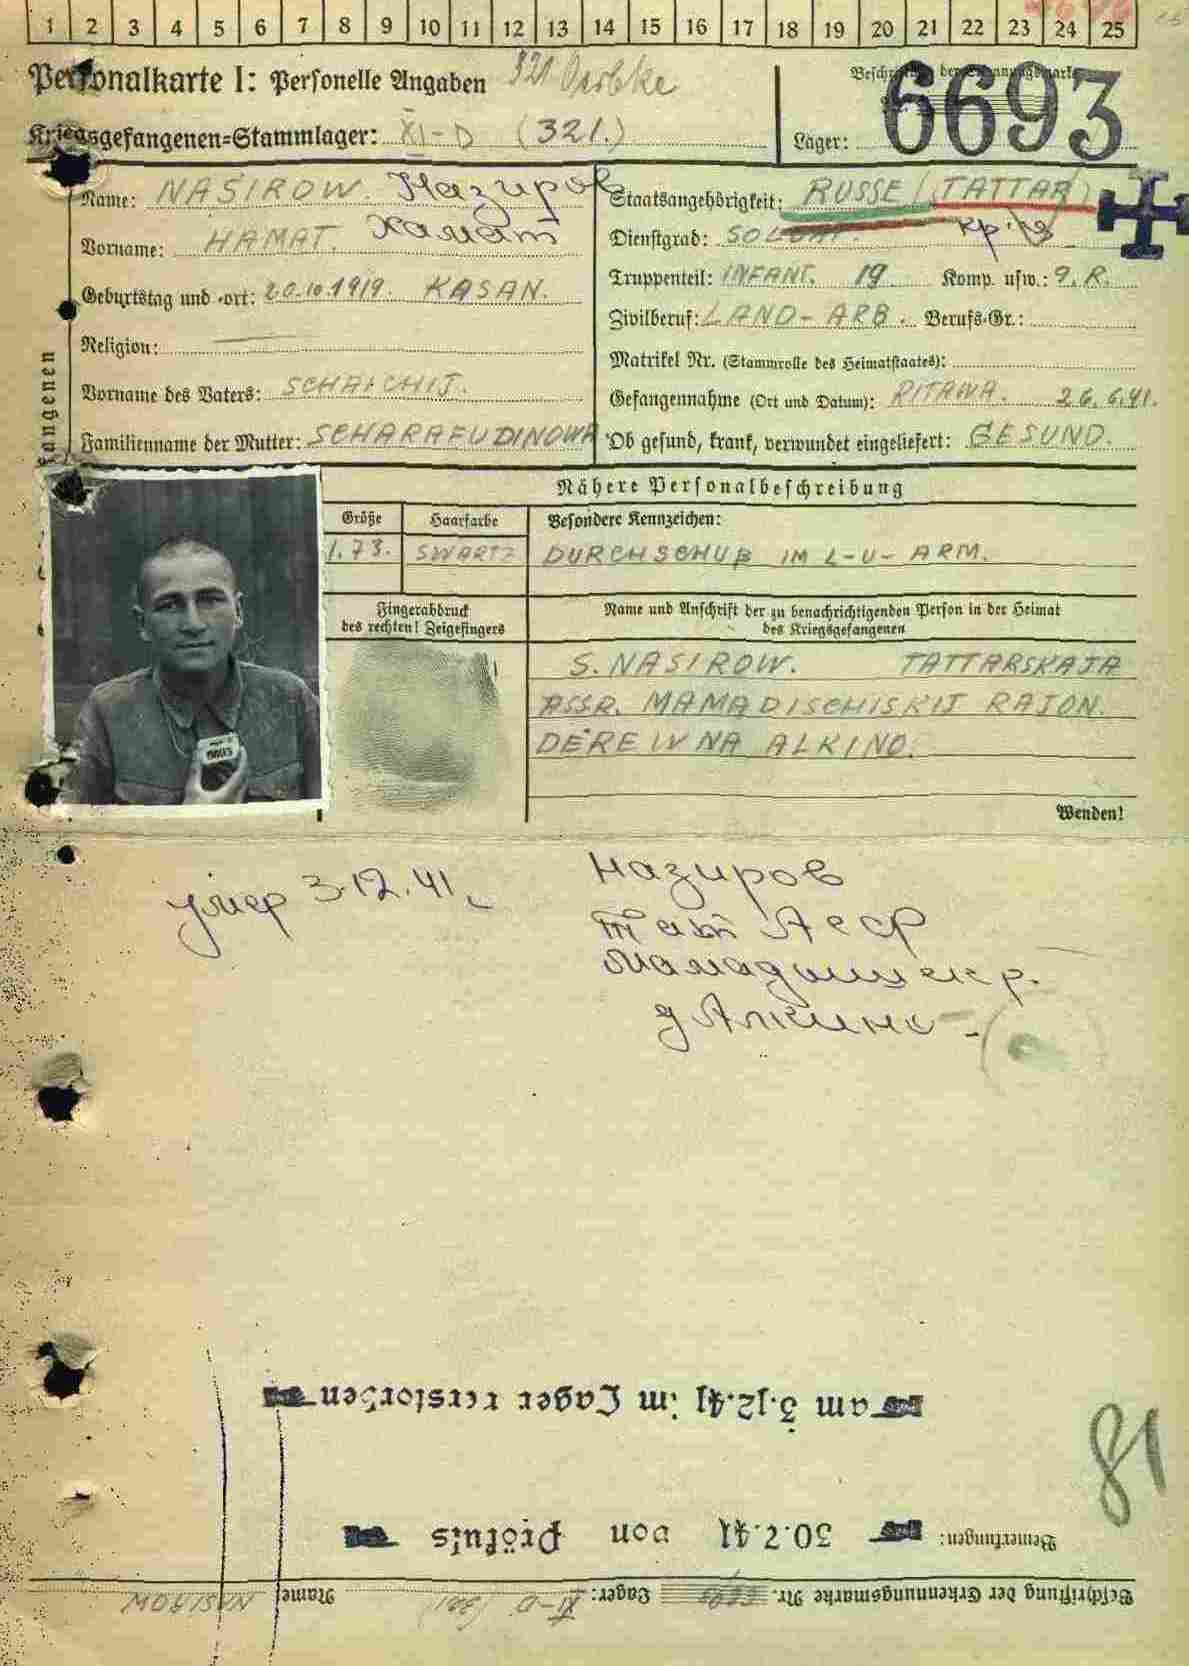 1 2 3 4 5 6 7 8 9 10 11 12 13 14 15 16 17 18 19 20 21 22 23 24 25
Personalkarte I: Personelle Angaben 321 Oerbke
Beschriftung der Erkennungsmarke
6693
Kriegsgefangenen-Stammlager: XI-D (321.)
Lager:
Name: NASIROW. Назиров
Vorname: HAMAT. Хамат
Geburtstag und -ort: 20.10.1919. KASAN.
Religion:
Vorname des Vaters: SCHAICHIJ.
Familienname der Mutter: SCHARAFUDINOWA
Staatsangehörigkeit: RUSSE (TATTAR)
Dienstgrad: SOLDAT. кр-ц
Truppenteil: INFANT. 19 Komp. usw.: 9. R.
Zivilberuf: LAND-ARB. Berufs-Gr.:
Matrikel Nr. (Stammrolle des Heimatstaates):
Gefangennahme (Ort und Datum): RITAWA. 26.6.41.
Ob gesund, krank, verwundet eingeliefert: GESUND.
angenen
Nähere Personalbeschreibung
Größe Haarfarbe Besondere Kennzeichen:
1.73. SWARTZ DURCHSCHUß IM L-U-ARM.
Fingerabdruck
des rechten! Zeigefingers
Name und Anschrift der zu benachrichtigenden Person in der Heimat
des Kriegsgefangenen
S. NASIROW. TATTARSKAJA
ASSR. MAMADISCHISKIJ RAJON.
DEREWNA ALKINO.
Wenden!
умер 3.12.41 г.
Назиров
Тат АССР
Мамадышск р.
д Алкино
am 3.12.41 im Lager verstorben
81
Bemerkungen: 30.7.41 von Prökuls
Beschriftung der Erkennungsmarke Nr. 6693 Lager: XI-D (321) Name: NASIROW